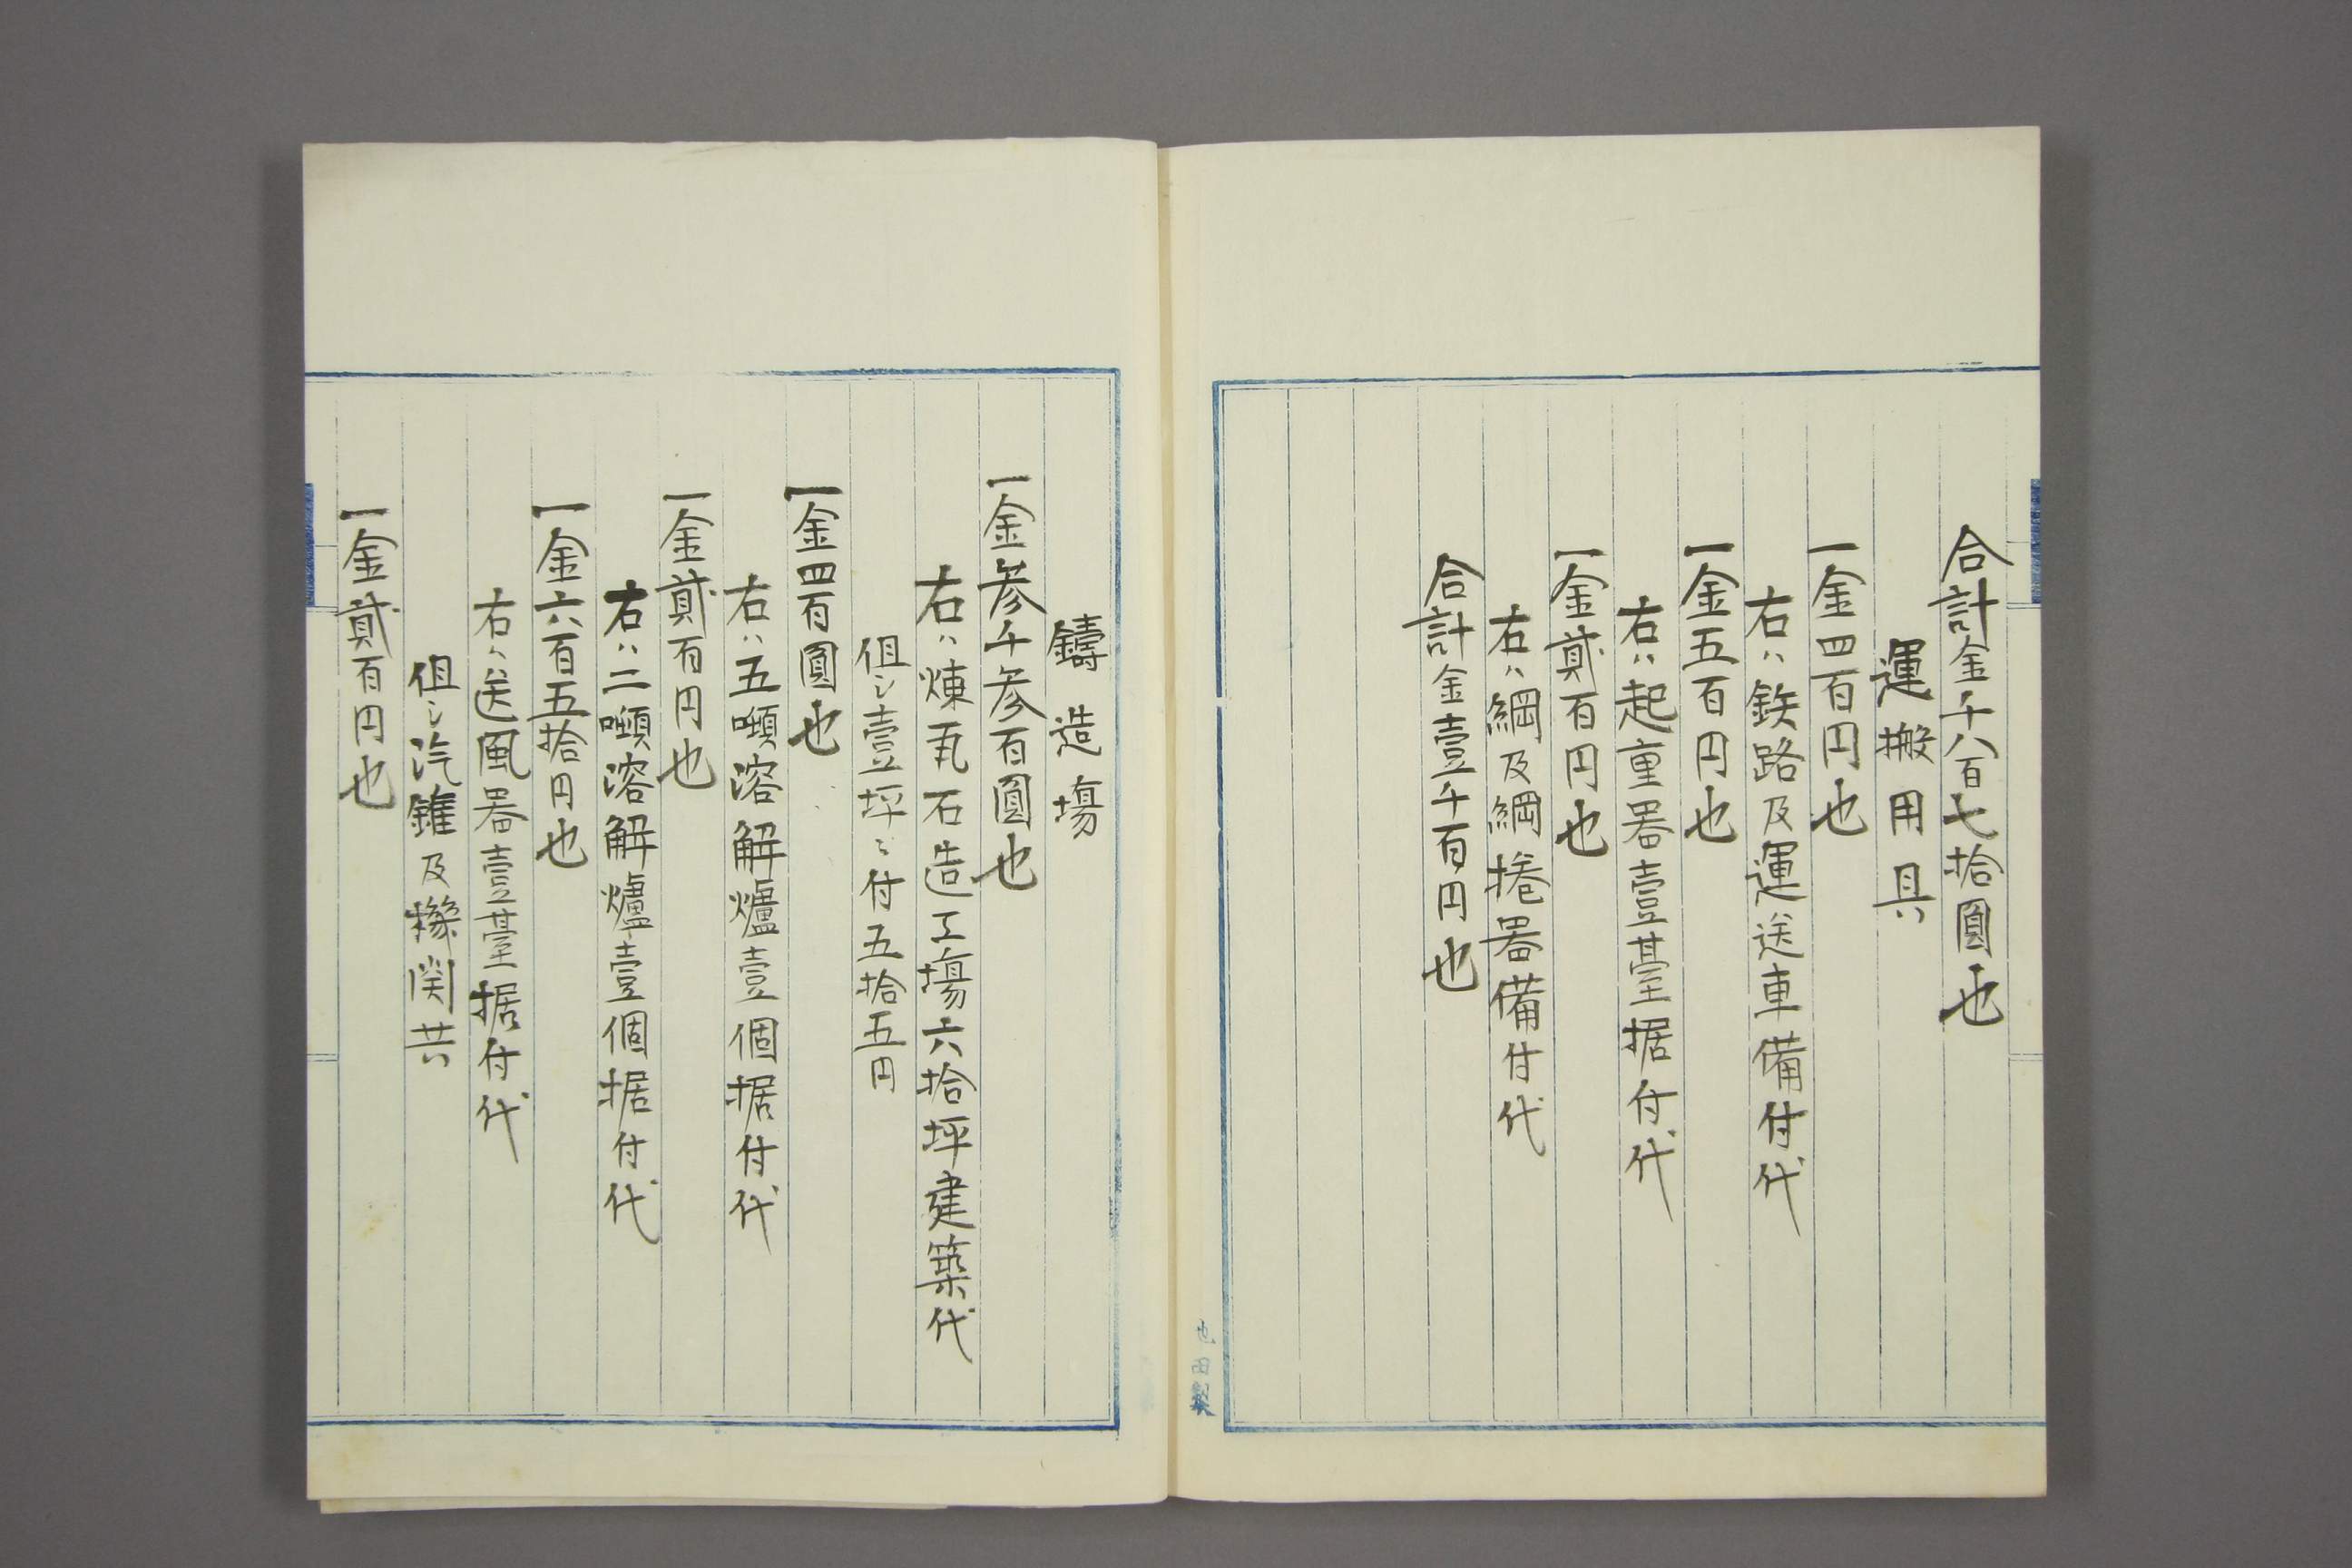 合計金千八百七拾圓也
運搬用具
一金四百円也
右ハ鉄路及運送車備付代
一金五百円也
右ハ起重器壹臺据付代
一金貳百円也
右ハ綱及綱捲器備付代
合計金壹千百円也
鑄造場
一金参千参百圓也
右ハ煉瓦石造工場六拾坪建築代
但シ壹坪ニ付五拾五円
一金四百圓也
右ハ五噸溶解爐壹個据付代
一金貳百円也
右ハ二噸溶解爐壹個据付代
一金六百五拾円也
右ハ送風器壹臺据付代
但シ汽鑵及機関共
一金貳百円也